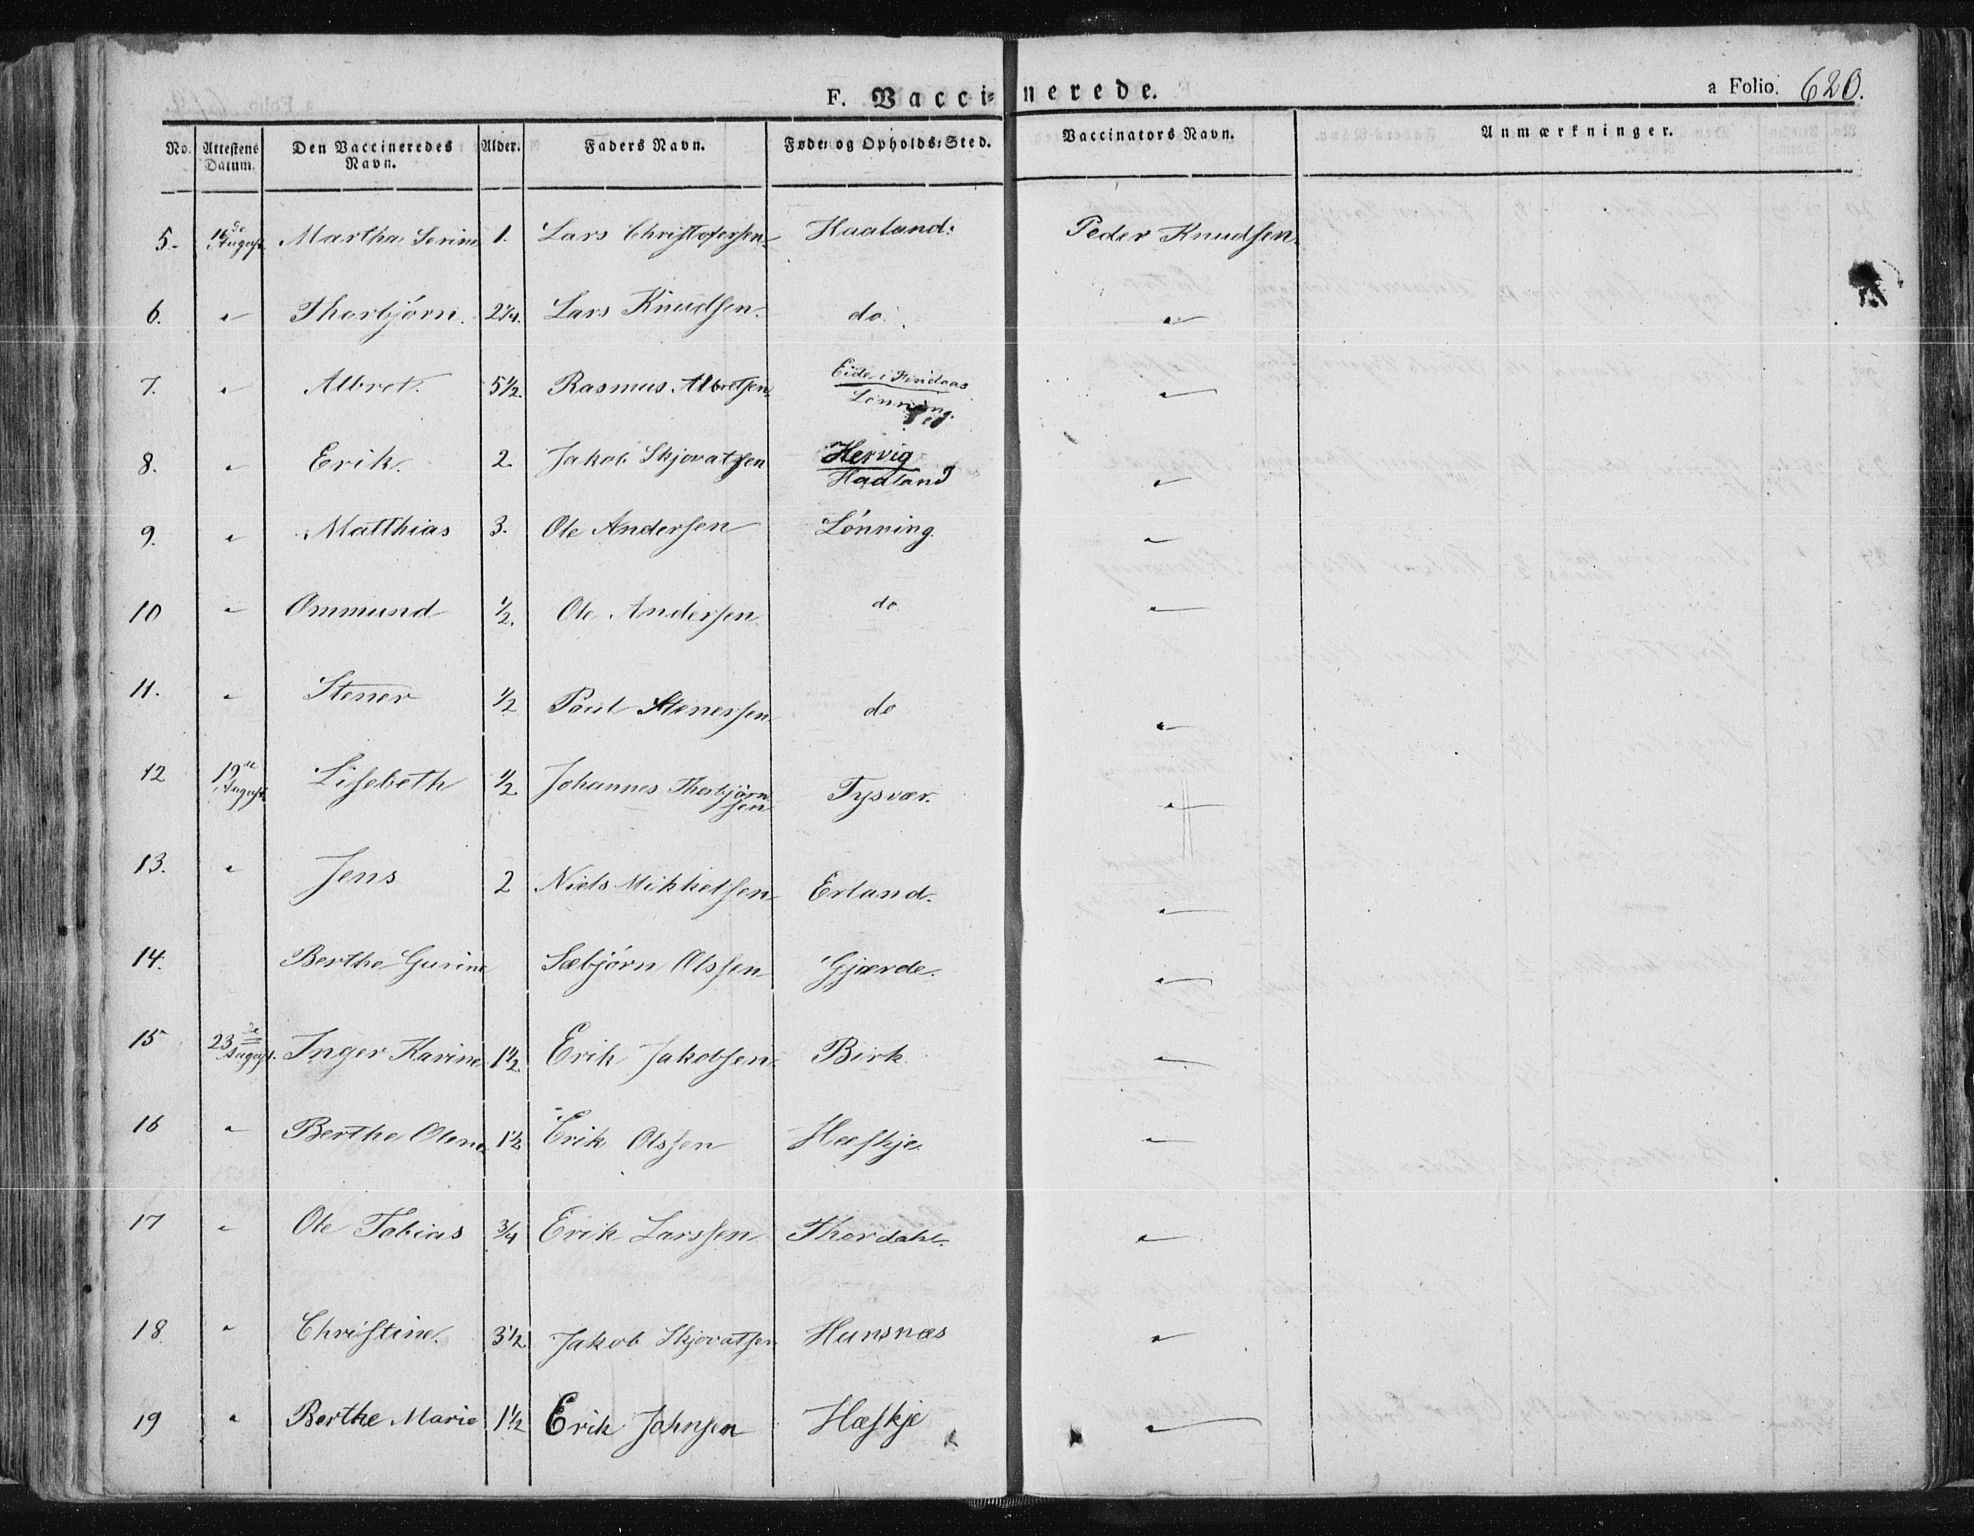 F. Vaccinerede.
a Folio. 620.
No. Attestens Datum. Den Vaccineredes Navn. Alder. Faders Navn. Føde- og Opholds-Sted. Vaccinators Navn. Anmærkninger.
5. 16de August Martha Serine 1. Lars Christofersen Haaland. Peder Knudsen
6. " Thorbjørn. 2 1/4. Lars Knudsen. do. "
7. " Albret. 5 1/2. Rasmus Albretsen Eide i Findaas "
Lønning
8. " Erik. 2. Jakob Skjovatsen Hervig "
Haaland
9. " Matthias 3. Ole Andersen Lønning. "
10 " Ommund 1/2. Ole Andersen do "
11. " Stener 1/2 Poul Stenersen do "
12 19de August Lisebeth 1/2 Johannes Thorbjørnsen Tysvær. "
13. " Jens 2 Niels Mikkelsen Erland. "
14. Berthe Gurine Sæbjørn Olssen Gjærde. "
15 23de August. Inger Karine 1 1/2 Erik Jakobsen Birk. "
16 " Berthe Olene 1 1/2 Erik Olssen Hæskje. "
17 " Ole Tobias 3/4 Erik Larssen. Thordahl. "
18 " Christine. 3 1/2. Jakob Skjovatsen Hunsnæs "
19 " Berthe Marie 1 1/2 Erik Johnsen Hæskje "